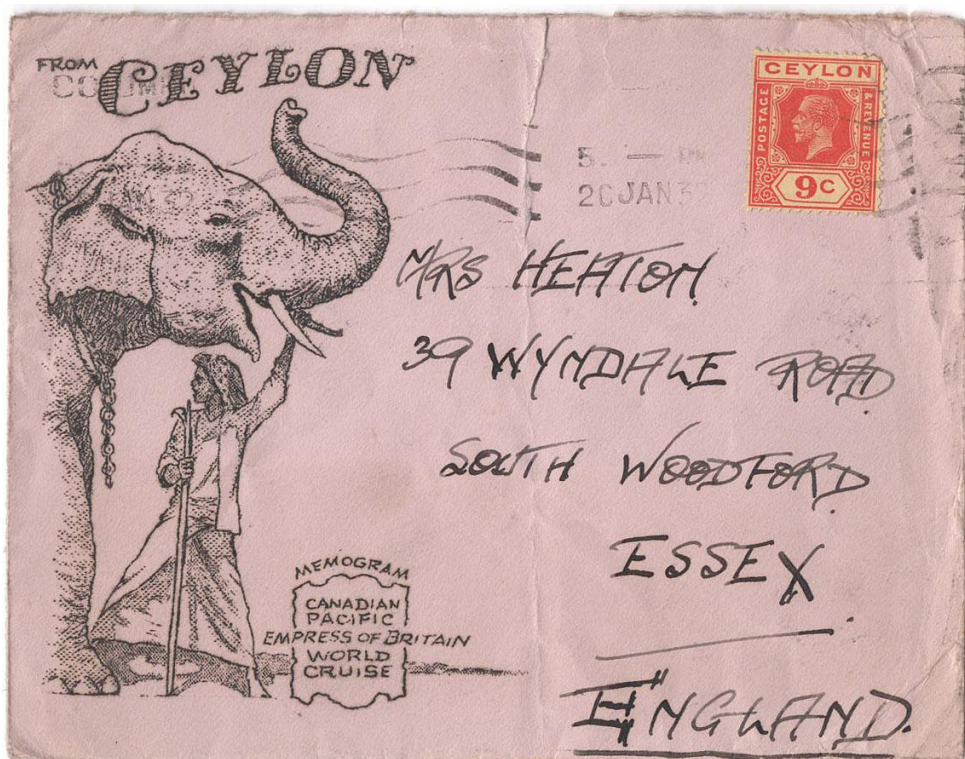 FROM
CEYLON
CEYLON
POSTAGE
& REVENUE
9C
5. — PM
JAN
MRS HEATON
39 WYNDALE ROAD
SOUTH WOODFORD
ESSEX.
ENGLAND.
MEMOGRAM
CANADIAN
PACIFIC
EMPRESS OF BRITAIN
WORLD
CRUISE